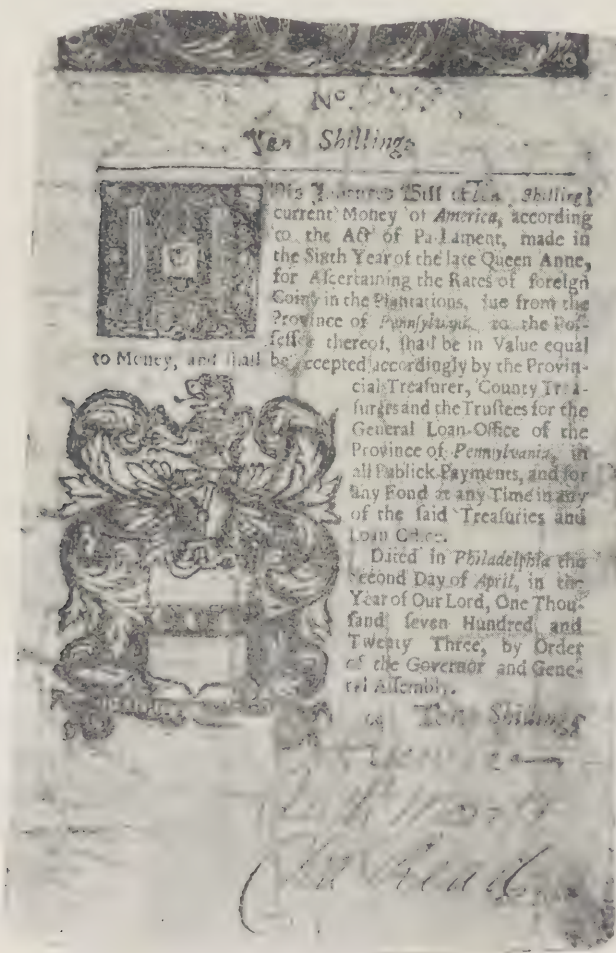 No.
Ten Shillings
This Indented Bill of Ten Shillings
current Money of America, according
to the Act of Parliament, made in
the Sixth Year of the late Queen Anne,
for Ascertaining the Rates of foreign
Coins in the Plantations, due from the
Province of Pennsylvania, to the Pos-
sessor thereof, shall be in Value equal
to Money, and shall be accepted accordingly by the Provin-
cial Treasurer, County Trea-
surers and the Trustees for the
General Loan-Office of the
Province of Pennsylvania, in
all Publick Payments, and for
any Fond at any Time in any
of the said Treasuries and
Loan Office.
Dated in Philadelphia the
Second Day of April, in the
Year of Our Lord, One Thou-
sand seven Hundred and
Twenty Three, by Order
of the Governor and Gene-
ral Assembly.
Ten Shillings
Read